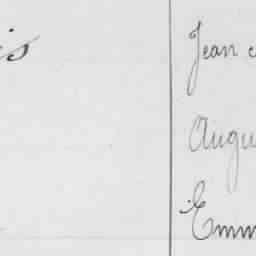 is Jean
Augu
Emm